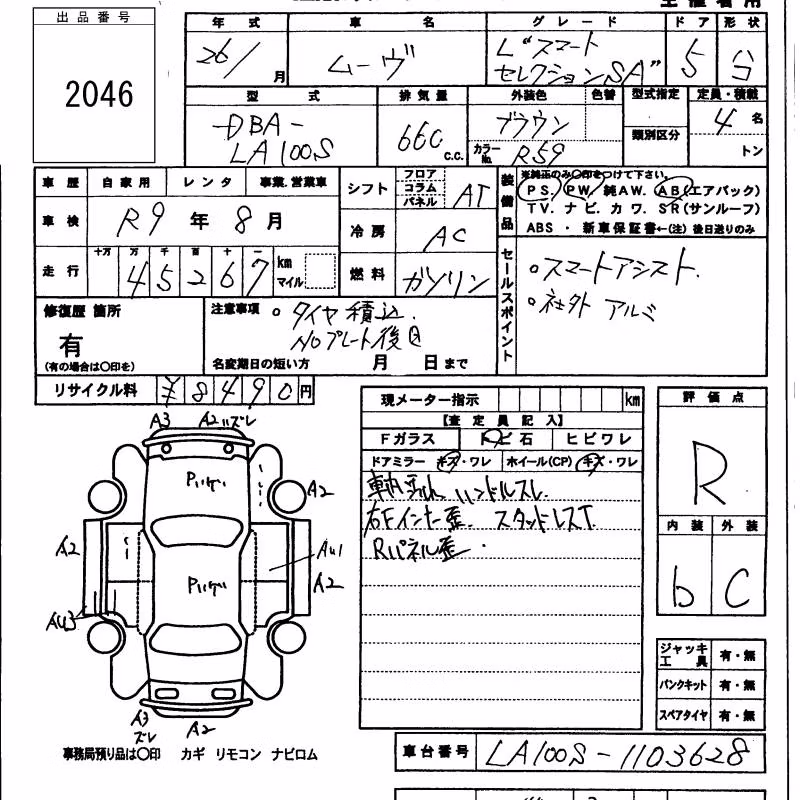 出品番号
2046
年式 車名 グレード ドア 形状
26/ 月 ムーヴ L"スマート セレクションSA" 5 台
型式 排気量 外装色 色替 型式指定 定員・積載
DBA-LA100S 660 c.c. ブラウン 類別区分 4 名
カラーNo. R59 トン
車歴 自家用 レンタ 事業、営業車
車検 R9年 8月
走行 十万 万 千 百 十 一
45267 km マイル
シフト フロア コラム パネル AT
冷房 AC
燃料 ガソリン
装備品
※純正のみ○印をつけて下さい。
PS. PW. 純AW. AB(エアバック)
TV. ナビ. カワ. SR(サンルーフ)
ABS ・ 新車保証書←(注) 後日送りのみ
セールスポイント
○スマートアシスト.
○社外 アルミ
修復歴 箇所
有
(有の場合は○印を)
注意事項 ○ タイヤ積込.
NOプレート後日
名変期日の短い方 月 日まで
リサイクル料 ¥8490円
現メーター指示 km
【査定員記入】
Fガラス トビ石 ヒビワレ
ドアミラー キズ・ワレ ホイール(CP) キズ・ワレ
ハンドルスレ
右Fインナー歪. スタッドレスT.
Rパネル歪.
評価点
R
内装 外装
b C
ジャッキ工具 有・無
パンクキット 有・無
スペアタイヤ 有・無
A3 A2 ズレ
A2
A2
AU1
A2
AU3
A3 ズレ
A2
事務局預り品は○印 カギ リモコン ナビロム
車台番号 LA100S-1103628